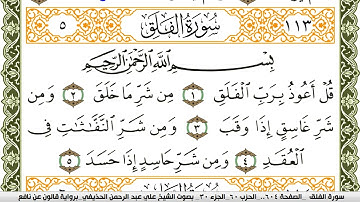 ٥ سُورَةُ الفَلَقِ ١١٣
بِسْمِ اللَّهِ الرَّحْمَٰنِ الرَّحِيمِ
قُلْ أَعُوذُ بِرَبِّ الْفَلَقِ ١ مِن شَرِّ مَا خَلَقَ ٢ وَمِن
شَرِّ غَاسِقٍ إِذَا وَقَبَ ٣ وَمِن شَرِّ النَّفَّٰثَٰتِ فِي
الْعُقَدِ ٤ وَمِن شَرِّ حَاسِدٍ إِذَا حَسَدَ ٥
سورة الفلق .. الصفحة ٦٠٤.. الحزب ٦٠ الجزء ٣٠. بصوت الشيخ علي عبد الرحمن الحذيفي. برواية قالون عن نافع